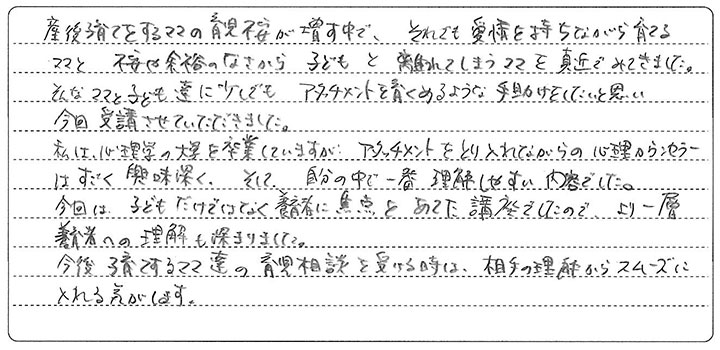 産後子育てをするママの育児不安が増す中で、それでも愛情を持ちながら育てる
ママと 不安や余裕のなさから 子どもと 離れてしまうママを真近でみてきました。
そんなママと子ども達に少しでも アタッチメントを育くめるような手助けをしたいと思い
今回 受講させていただきました。
私は、心理学の大学を卒業していますが アタッチメントをとり入れながらの心理カウンセラー
はすごく 興味深く、そして、自分の中で一番 理解しやすい内容でした。
今回は 子どもだけではなく養育者に焦点を あてた講座でしたので、より一層
養育者への理解も深まりました。
今後 子育てするママ達の育児相談を受ける時は、相手の理解からスムーズに
とれる気がします。